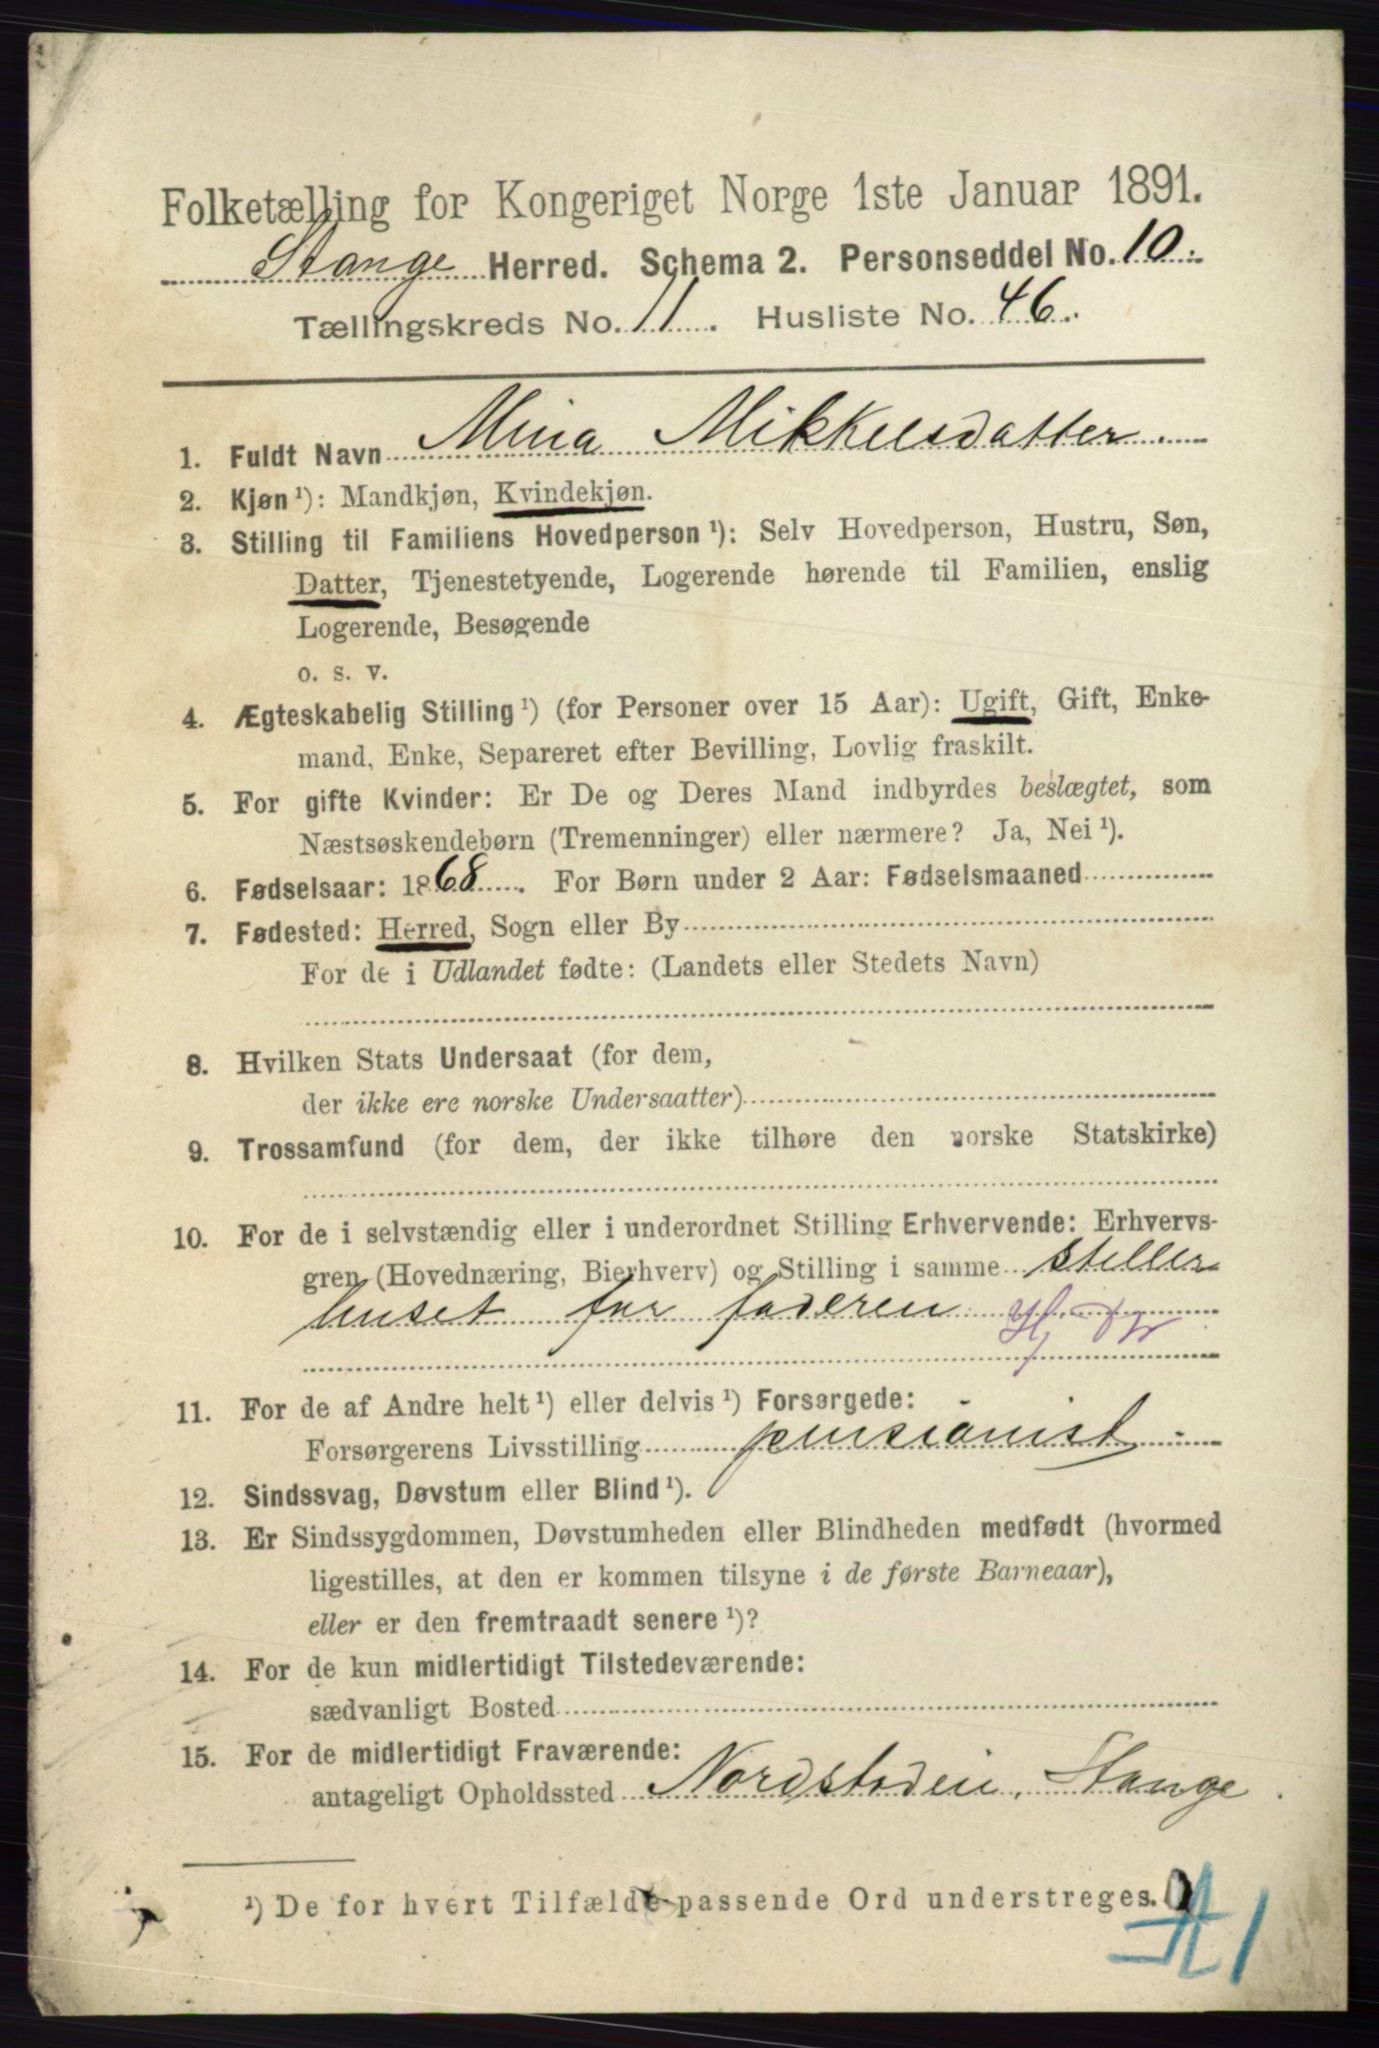 Folketælling for Kongeriget Norge 1ste Januar 1891.
Stange Herred. Schema 2. Personseddel No. 10.
Tællingskreds No. 11. Husliste No. 46.
1. Fuldt Navn Mina Mikkelsdatter
2. Kjøn ¹): Mandkjøn, Kvindekjøn.
3. Stilling til Familiens Hovedperson ¹): Selv Hovedperson, Hustru, Søn,
Datter, Tjenestetyende, Logerende hørende til Familien, enslig
Logerende, Besøgende
o. s. v.
4. Ægteskabelig Stilling ¹) (for Personer over 15 Aar): Ugift, Gift, Enke-
mand, Enke, Separeret efter Bevilling, Lovlig fraskilt.
5. For gifte Kvinder: Er De og Deres Mand indbyrdes beslægtet, som
Næstsøskendebørn (Tremenninger) eller nærmere? Ja, Nei ¹).
6. Fødselsaar: 1868. For Børn under 2 Aar: Fødselsmaaned
7. Fødested: Herred, Sogn eller By
For de i Udlandet fødte: (Landets eller Stedets Navn)
8. Hvilken Stats Undersaat (for dem,
der ikke ere norske Undersaatter)
9. Trossamfund (for dem, der ikke tilhøre den norske Statskirke)
10. For de i selvstændig eller i underordnet Stilling Erhvervende: Erhvervs-
gren (Hovednæring, Bierhverv) og Stilling i samme steller
huset for faderen
11. For de af Andre helt ¹) eller delvis ¹) Forsørgede:
Forsørgerens Livsstilling pensionist
12. Sindssvag, Døvstum eller Blind ¹).
13. Er Sindssygdommen, Døvstumheden eller Blindheden medfødt (hvormed
ligestilles, at den er kommen tilsyne i de første Barneaar),
eller er den fremtraadt senere ¹)?
14. For de kun midlertidigt Tilstedeværende:
sædvanligt Bosted
15. For de midlertidigt Fraværende:
antageligt Opholdssted Nordstodeie, Stange
¹) De for hvert Tilfælde passende Ord understreges.